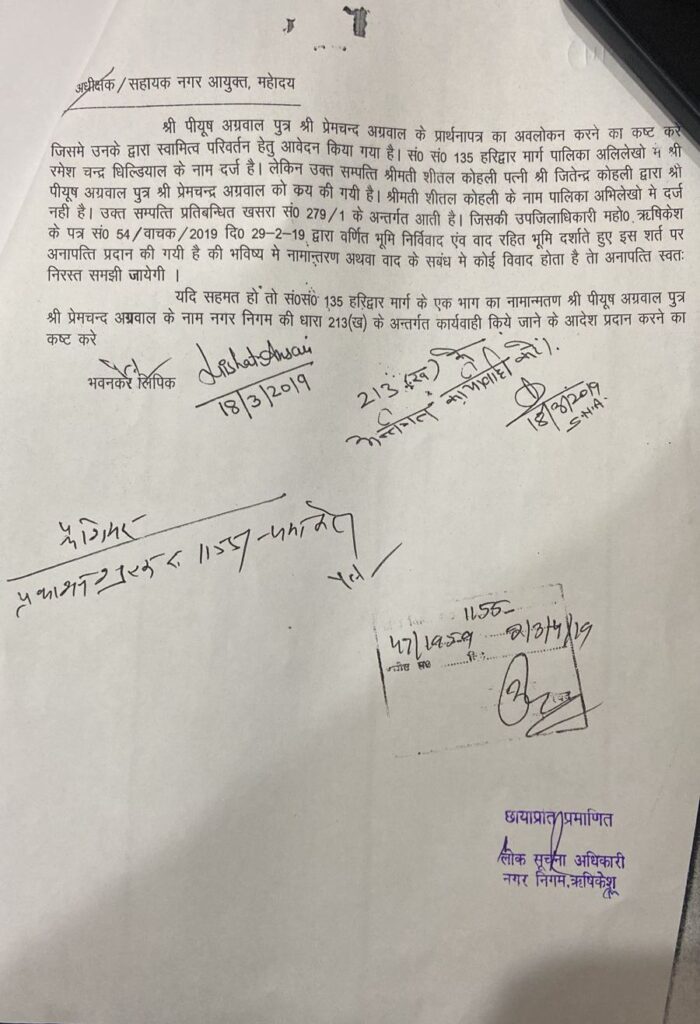 अधीक्षक/सहायक नगर आयुक्त, महोदय
श्री पीयूष अग्रवाल पुत्र श्री प्रेमचन्द अग्रवाल के प्रार्थनापत्र का अवलोकन करने का कष्ट करे
जिसमे उनके द्वारा स्वामित्व परिवर्तन हेतु आवेदन किया गया है। सं0 सं0 135 हरिद्वार मार्ग पालिका अलिलेखो में श्री
रमेश चन्द्र धिल्डियाल के नाम दर्ज है। लेकिन उक्त सम्पत्ति श्रीमती शीतल कोहली पत्नी श्री जितेन्द्र कोहली द्वारा श्री
पीयूष अग्रवाल पुत्र श्री प्रेमचन्द्र अग्रवाल को कय की गयी है। श्रीमती शीतल कोहली के नाम पालिका अभिलेखो मे दर्ज
नही है। उक्त सम्पत्ति प्रतिबन्धित खसरा सं0 279/1 के अन्तर्गत आती है। जिसकी उपजिलाधिकारी महो0 ऋषिकेश
के पत्र सं0 54/वाचक/2019 दि0 29-2-19 द्वारा वर्णित भूमि निर्विवाद एंव वाद रहित भूमि दर्शाते हुए इस शर्त पर
अनापत्ति प्रदान की गयी है की भविष्य मे नामान्तरण अथवा वाद के सबंध मे कोई विवाद होता है तेा अनापत्ति स्वतः
निरस्त समझी जायेगी ।
यदि सहमत हों तो सं0सं0 135 हरिद्वार मार्ग के एक भाग का नामान्मतण श्री पीयूष अग्रवाल पुत्र
श्री प्रेमचन्द अग्रवाल के नाम नगर निगम की धारा 213(ख) के अन्तर्गत कार्यवाही किये जाने के आदेश प्रदान करने का
कष्ट करे
भवनकर लिपिक
18/3/2019
213 (ख) के
अर्न्तगत कार्यवाही करें।
18/3/2019
S.N.A.
1155
1155
छायाप्रति प्रमाणित
लोक सूचना अधिकारी
नगर निगम, ऋषिकेश